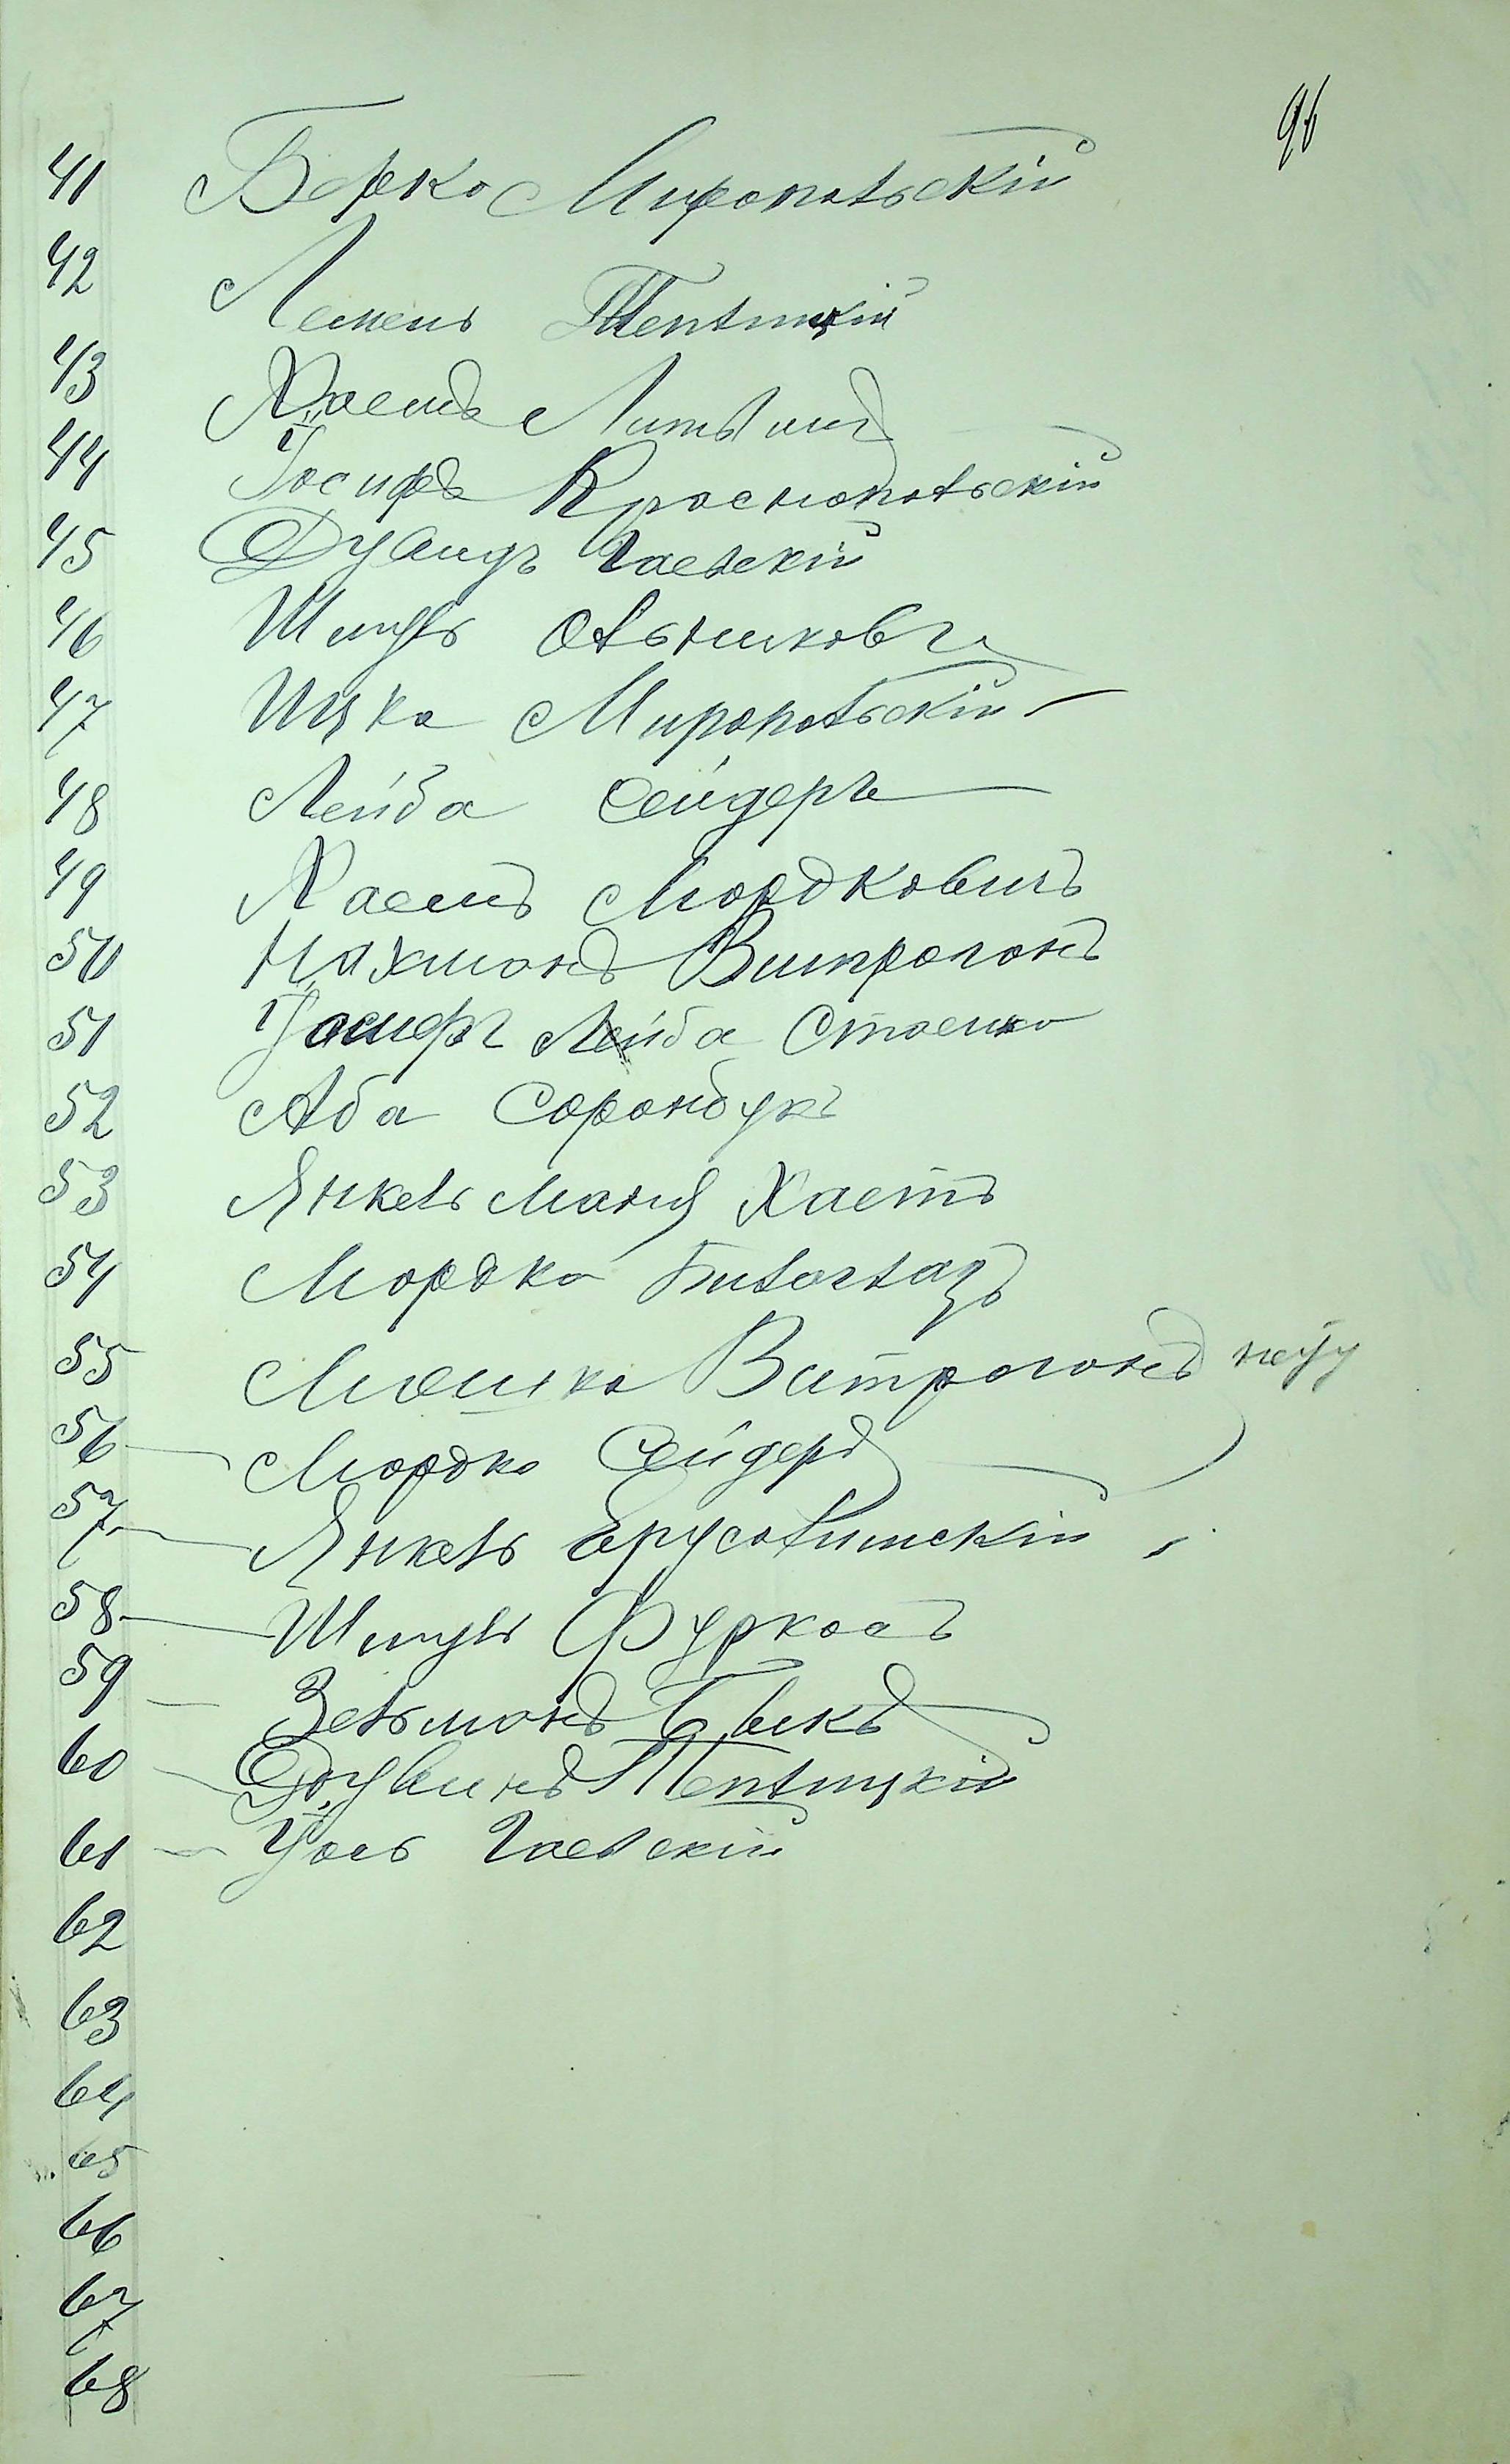 96
41 Берко Миропольскій
42 Лемель Теплицкій
43 Хаемъ Литвинъ
44 Іосифъ Краснопольскій
45 Дувидъ Гаевскій
46 Шмуль Альшиковъ
47 Ицко Миропольскій
48 Лейба Сейдеръ
49 Хаемъ Мордковичъ
50 Нахманъ Витрогонъ
51 Іосифъ Лейба Стаенко
52 Аба Саранбукъ
53 Янкель Маня Хаетъ
54 Мордко Билоглазъ
55 Мошко Витрогонъ нету
56 Мордко Сейдеръ
57 Янкель Ерусалимскій
58 Шмуль Фуркасъ
59 Зельманъ Быкъ
60 Дувинъ Теплицкій
61 Іось Гаевскій
62
63
64
65
66
67
68